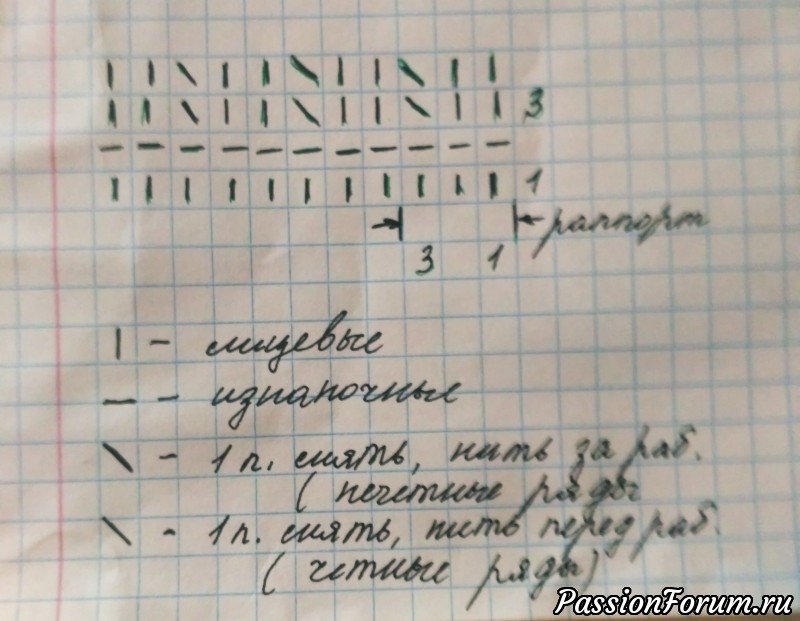 | | \ | | \ | | \ | |
| | \ | | \ | | \ | | 3
— — — — — — — — — — —
| | | | | | | | | | | 1
→| |← раппорт
3 1
| - лицевые
— - изнаночные
\ - 1 п. снять, нить за раб.
( нечетные ряды
\ - 1 п. снять, нить перед раб.
( четные ряды)
PassionForum.ru